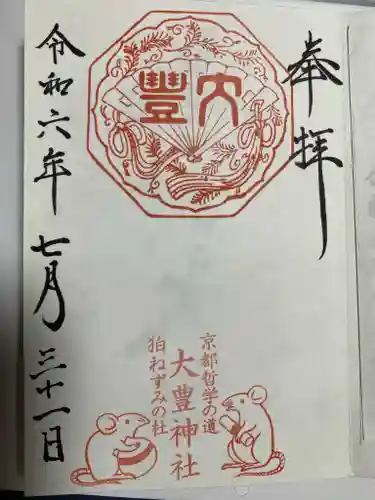 奉拝
大豐
京都哲学の道
大豊神社
狛ねずみの社
令和六年 七月 三十一日